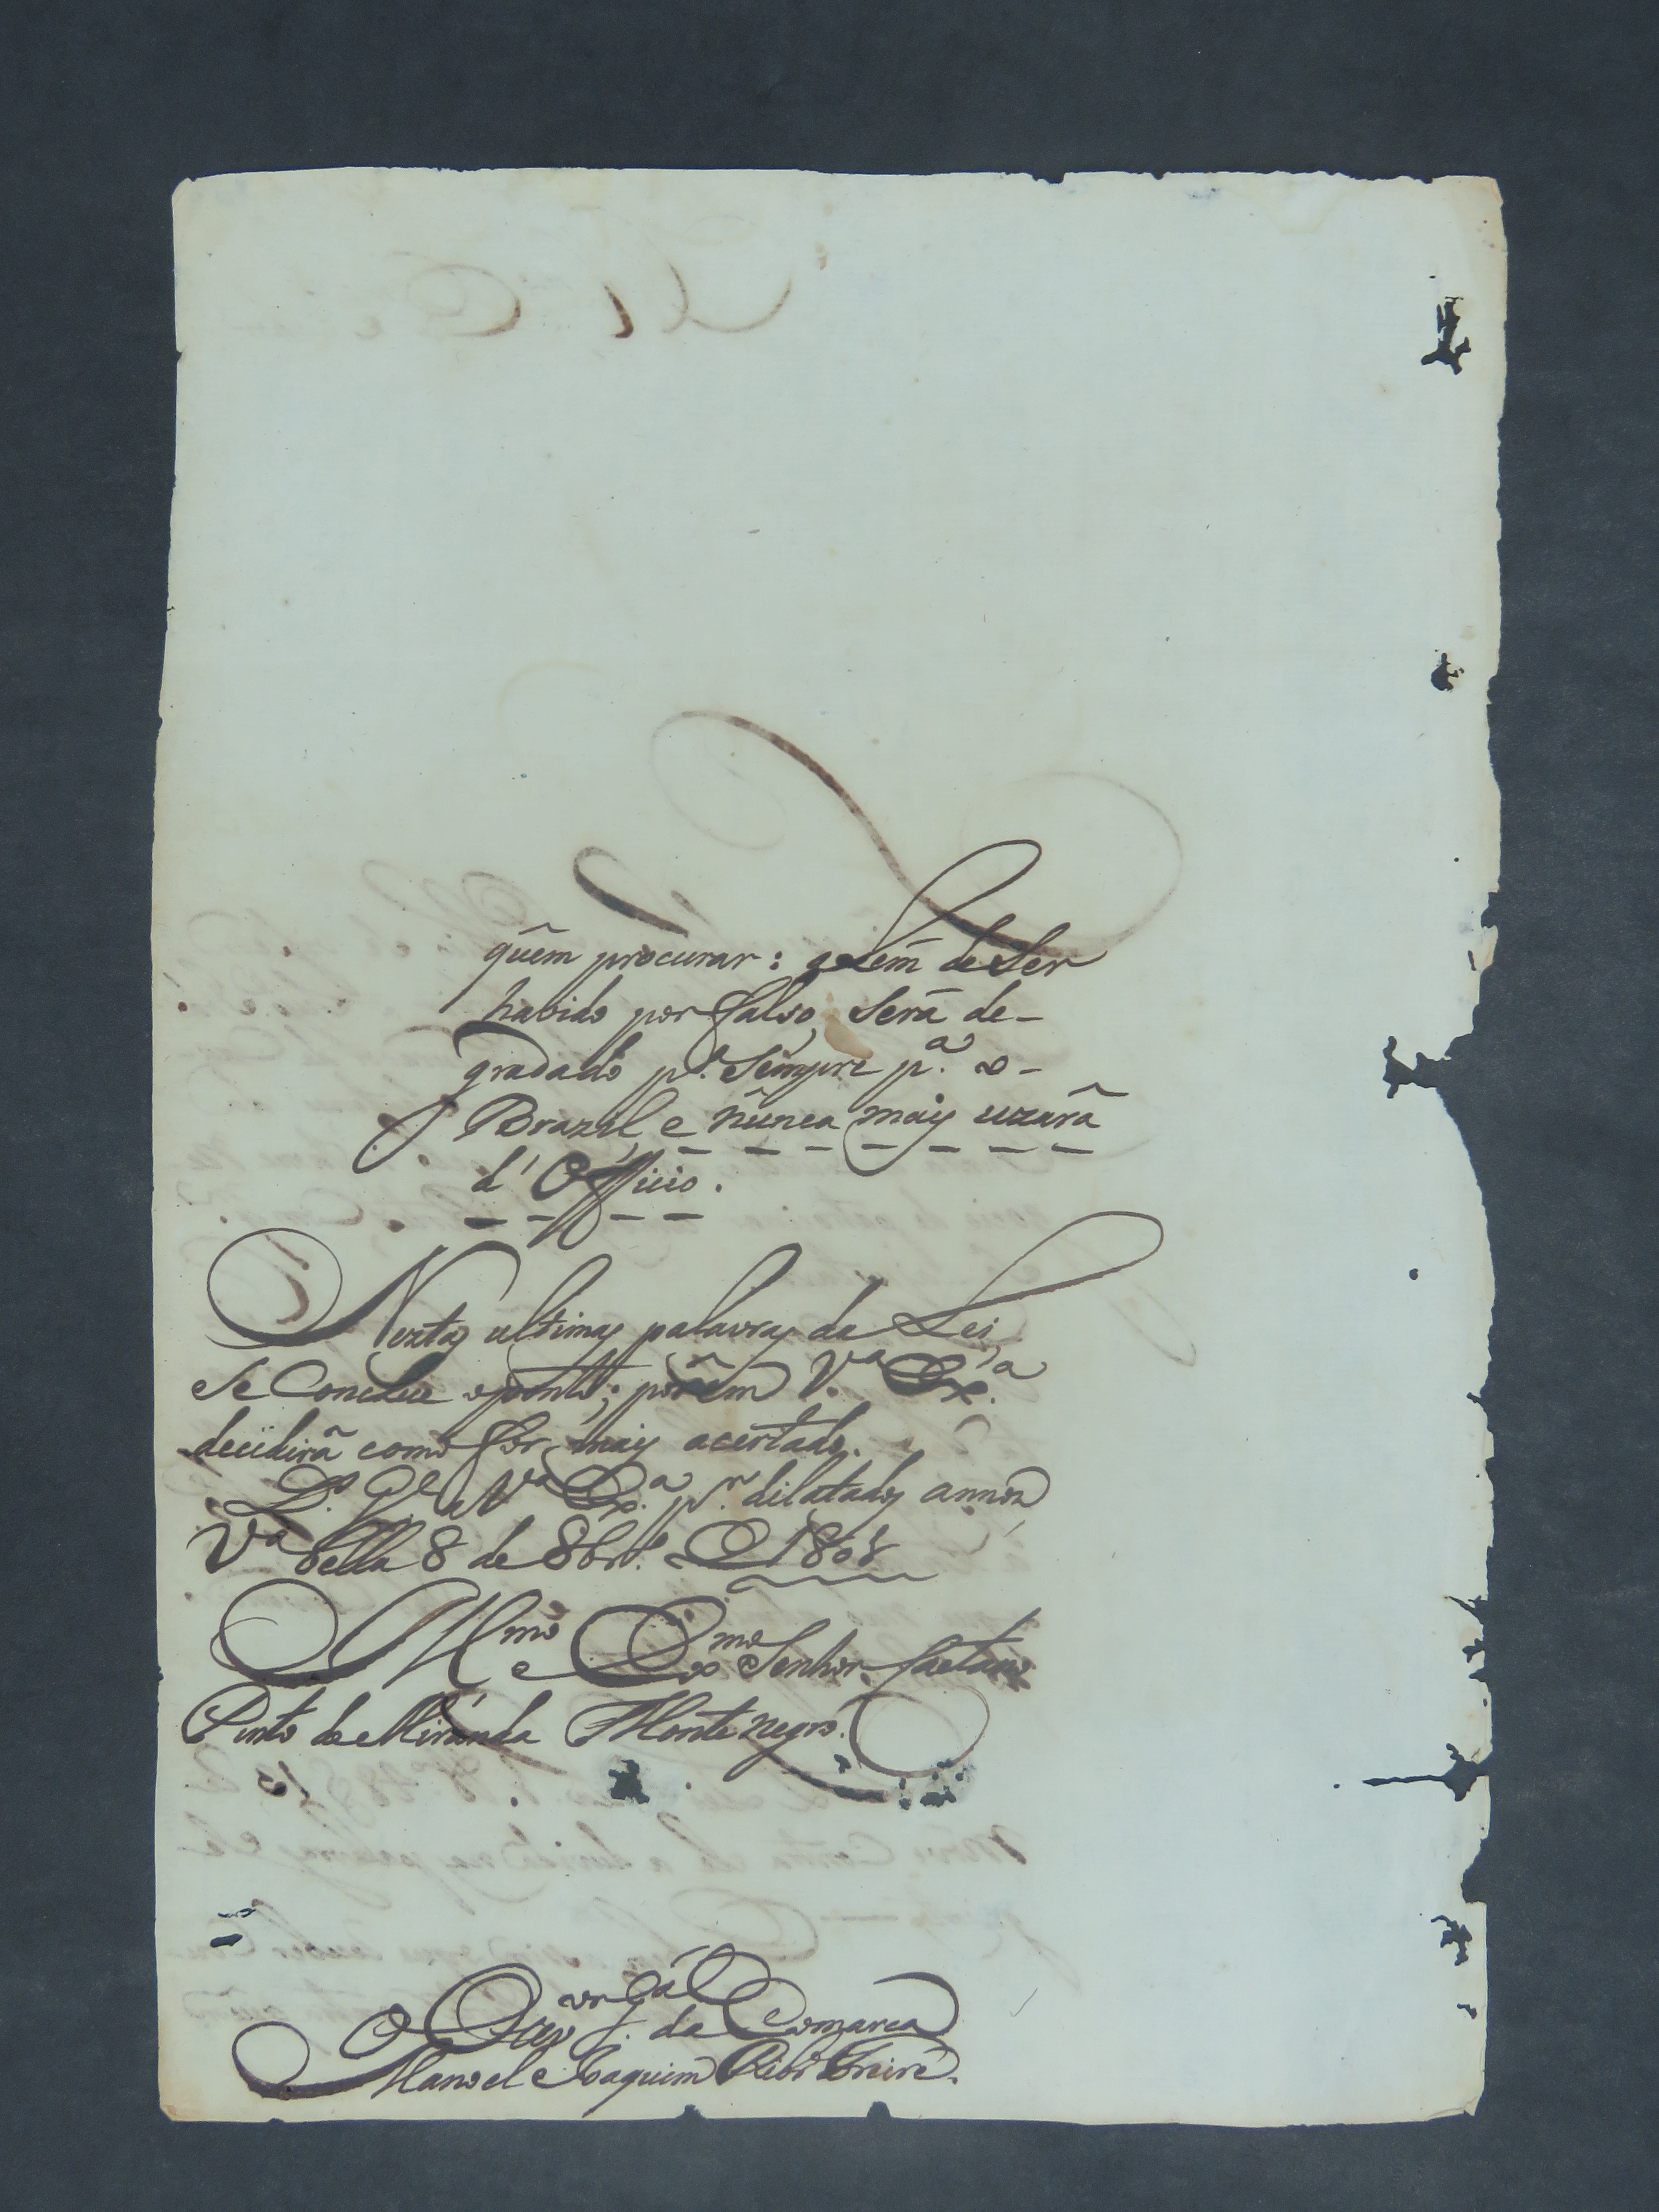 quem procurar: alem de Ser
habido por falso, Será de-
gradado p.ª Sempre p.ª o-
Brazil, e nunca mais uzará
d'Officio.
Nestas ultimas palavras da Lei
Se Conclue o ponto; porêm V.ª Ex.ª
decidirá como for mais acertado.
D.s G.e a V.ª Ex.ª p.r dilatados annos
V.ª bella 8 de 8br.º
Ill.mo e Ex.mo Senhor Caetano
Pinto de Miranda Monte negro.
O Ouv.or g.al da Comarca
Manoel Joaquim Ribr.º Freire.